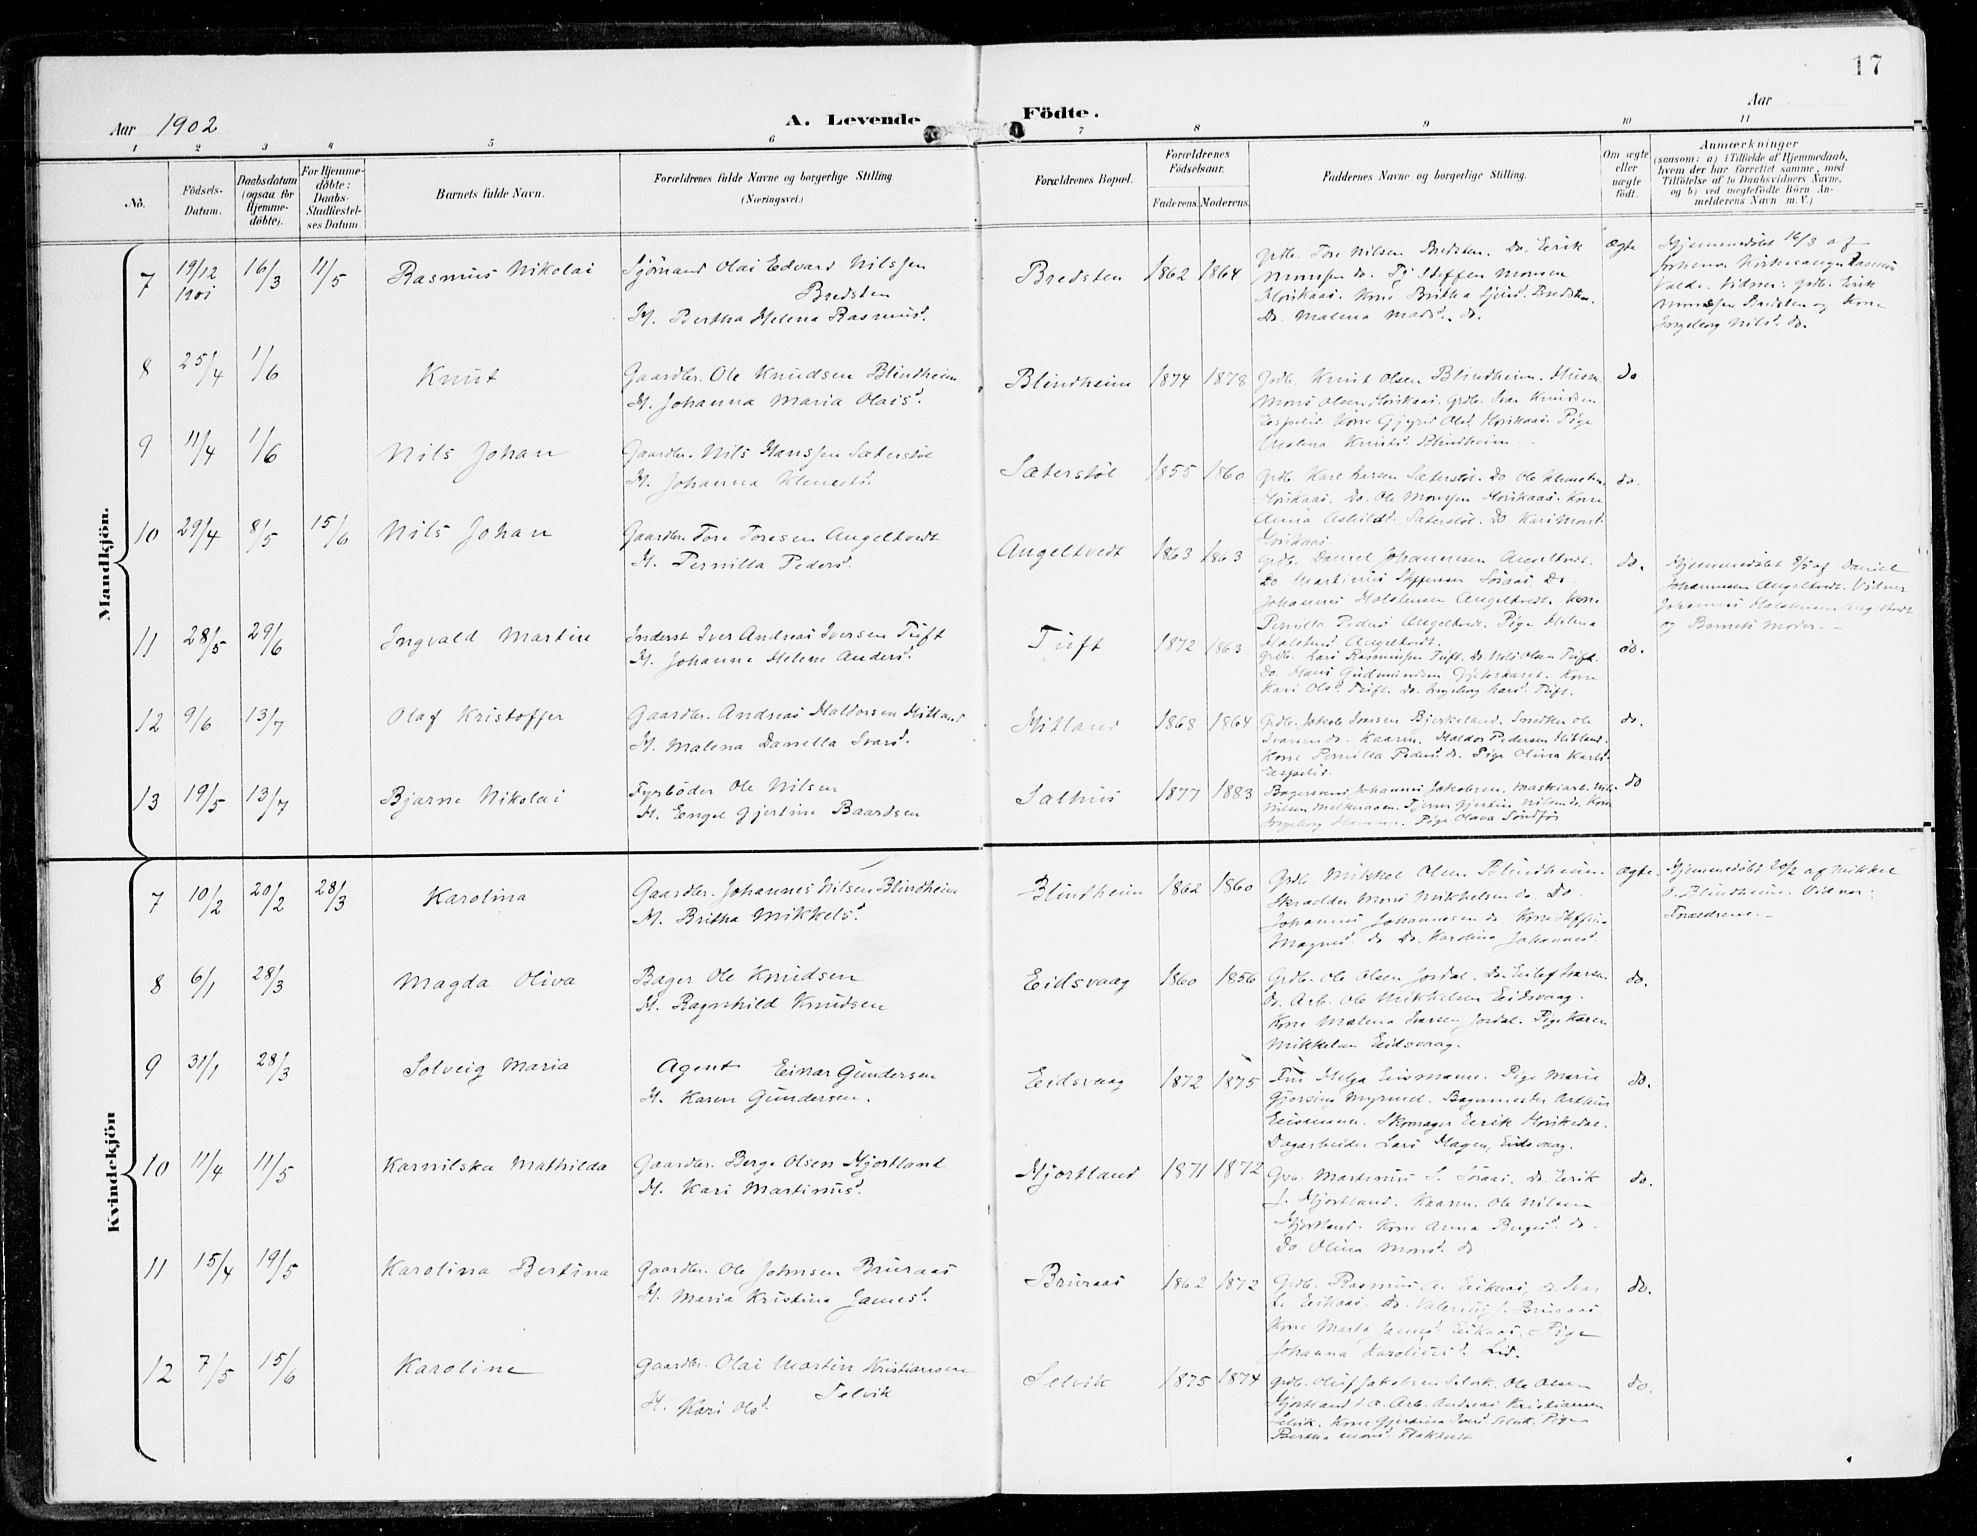 17
Aar 1902
A. Levende
Födte.
Aar
1 2 3 4 5 6 7 8 9 10 11
No.
Födsels-Datum.
Daabsdatum (ogsaa for Hjemme-döbte).
For Hjemme-döbte: Daabs-Stadfæstel-ses Datum.
Barnets fulde Navn.
Forældrenes fulde Navne og borgerlige Stilling.
(Næringsvei.)
Forældrenes Bopæl.
Forældrenes Födselsaar.
Faderens. Moderens.
Faddernes Navne og borgerlige Stilling.
Om ægte eller uægte födt.
Anmærkninger
(saasom: a) i Tilfælde af Hjemmedaab,
hvem der har forrettet samme, med
Tilföielse af to Daabsvidners Navne,
og b) ved uægtefödte Börn An-
melderens Navn m. V.)
Mandkjön.
7 19/12 1901 16/3 11/5 Rasmus Nikolai
Olai Edvard Nilssen
Bredsten
H. Bertha Helena Rasmusd.
Bredsten 1862 1864
Grdb. Tore Nilsen Bredsten. Do. Eirik
Monssen do. Steffen Monsen
Britha Bredsten.
Do. Malena Madsd. do.
ægte
Hjemmedöbt 16/3 af
Rasmus
Valde. Vidner: grdb. Eirik
Monssen Bredsten og Kone
Ingeborg Nilsd. do.
8 25/4 1/6 Knut
Gaardbr. Ole Knudsen Blindheim
H. Johanna Maria Olaisd.
Blindheim 1874 1878
Grdb. Knut Olsen Blindheim. Husm.
Mons Olsen grdb. Ivar Knudsen
Espelid. Kone Olsd. Pige
Malena Knutsd. Blindheim.
do.
9 11/4 1/6 Nils Johan
Gaardbr. Nils Hanssen Sæterstöl
H. Johanna Klemetsd.
Sæterstöl 1855 1860
Grdb. Larsen Sæterstöl. Do Ole
Do. Ole Monssen Kone
Anna Sæterstöl. Do. Kari Monsd.
do.
10 29/4 8/5 15/6 Nils Johan
Gaardbr. Tore Toresen Angeltvedt
H. Pernilla Pedersd.
Angeltvedt 1863 1863
Grdb. Daniel Johannesen Angeltvedt.
Do Martinus Steffensen Söraas. Do.
Johannes Halstensen Angeltvedt. Kone
Pernilla Pedersd. Angeltvedt. Pige Helena
Halstensd. Angeltvedt.
do.
Hjemmedöbt 8/5 af Daniel
Johannesen Angeltvedt. Vidner
Johannes Halstensen Angeltvedt
og Barnets Moder.
11 28/5 29/6 Ingvald Martin
Inderst Iver Andreas Iversen Tuft
H. Johanne Helene Andersd.
Tuft 1872 1863
Grdb. Lars Rasmussen Tuft. Do. Nils Olsen Tuft.
Do. Hans Gudmundsen Kone
Kari Olsd. Tuft. Do. Ingeborg Larsd. Tuft.
do.
12 9/6 13/7 Olaf Kristoffer
Gaardbr. Andreas Haldorsen Hitland
H. Malena Daniella Ivarsd.
Hitland 1868 1864
Grdb. Jakob Ivarsen Bjerkeland. Snedker Ole
Ivarsen do. Kaarm. Haldor Pedersen Hitland.
Kone Pernilla Pedersd. do. Pige Olina Karlsd.
Espelid.
do.
13 19/5 13/7 Bjarne Nikolai
Fyrböder Ole Nilsen
H. Engel Gjertine Baardsen
Salhus 1877 1883
Johannes Jakobsen. Maskinarb. Nils
Nilsen
Ingeborg Pige Olava
do
Kvindekjön
7 10/2 20/2 28/3 Karolina
Gaardbr. Johannes Nilsen Blindheim
H. Britha Mikkelsd.
Blindheim 1862 1860
Grdb. Mikkel Olsen Blindheim.
Skrædder Mons Mikkelsen do. Do.
Johannes Johannesen do. Kone
Magnesd. do. Do. Karolina Johannesd.
ægte.
Hjemmedöbt 20/2 af Mikkel
O. Blindheim. Vidner:
Forældrene.
8 6/1 28/3 Magda Oliva
Bager Ole Knudsen
H. Ragnhild Knudsen
Eidsvaag 1860 1856
Grdb. Ole Olsen Jordal. Do. Ivarsen
do. Arb. Ole Mikkelsen Eidsvaag.
Kone Malena Ivarsen Jordal. Pige Karen
Mikkelsen Eidsvaag.
do.
9 31/1 28/3 Solveig Maria
Agent Einar Gundersen
H. Karen Gundersen.
Eidsvaag 1872 1875
Fru Helga Eismann. Pige Marie
Bagermester Arthur
Eismann. Skomager Eirik
Dagarbeider Lars Hagen, Eidsvaag.
do.
10 11/4 11/5 Kornilska Mathilda
Gaardbr. Berge Olsen Hjortland
H. Kari Martinusd.
Hjortland 1871 1872
Grb. Martinus S. Söraas. Do. Eirik
J. Hjortland. Kaarm. Ole Nilsen
Hjortland. Kone Anna Bergesd. do.
Do. Olina Monsd. do.
do.
11 15/4 19/5 Karolina Bertina
Gaardbr. Ole Johnsen Bruraas
H. Maria Kristina Jamesd.
Bruraas 1862 1872
Grdb. Rasmus Eikaas, do. Ivar
L. Eikaas. Do. Valerius J. Bruraas
Kone Marta Jamesd. Eikaas. Pige
Johanna Karoliusd. Lid.
do.
12 7/5 15/6 Karoline
Gaardbr. Olai Martin Kristiansen
Selvik
H. Kari Olsd.
Selvik 1875 1874
Grdb. Oluf Jakobsen Selvik. Ole Olsen
Hjortland Arb. Andreas Kristiansen
Selvik. Kone Gjertina Selvik. Pige
Bertha Monsd.
do.